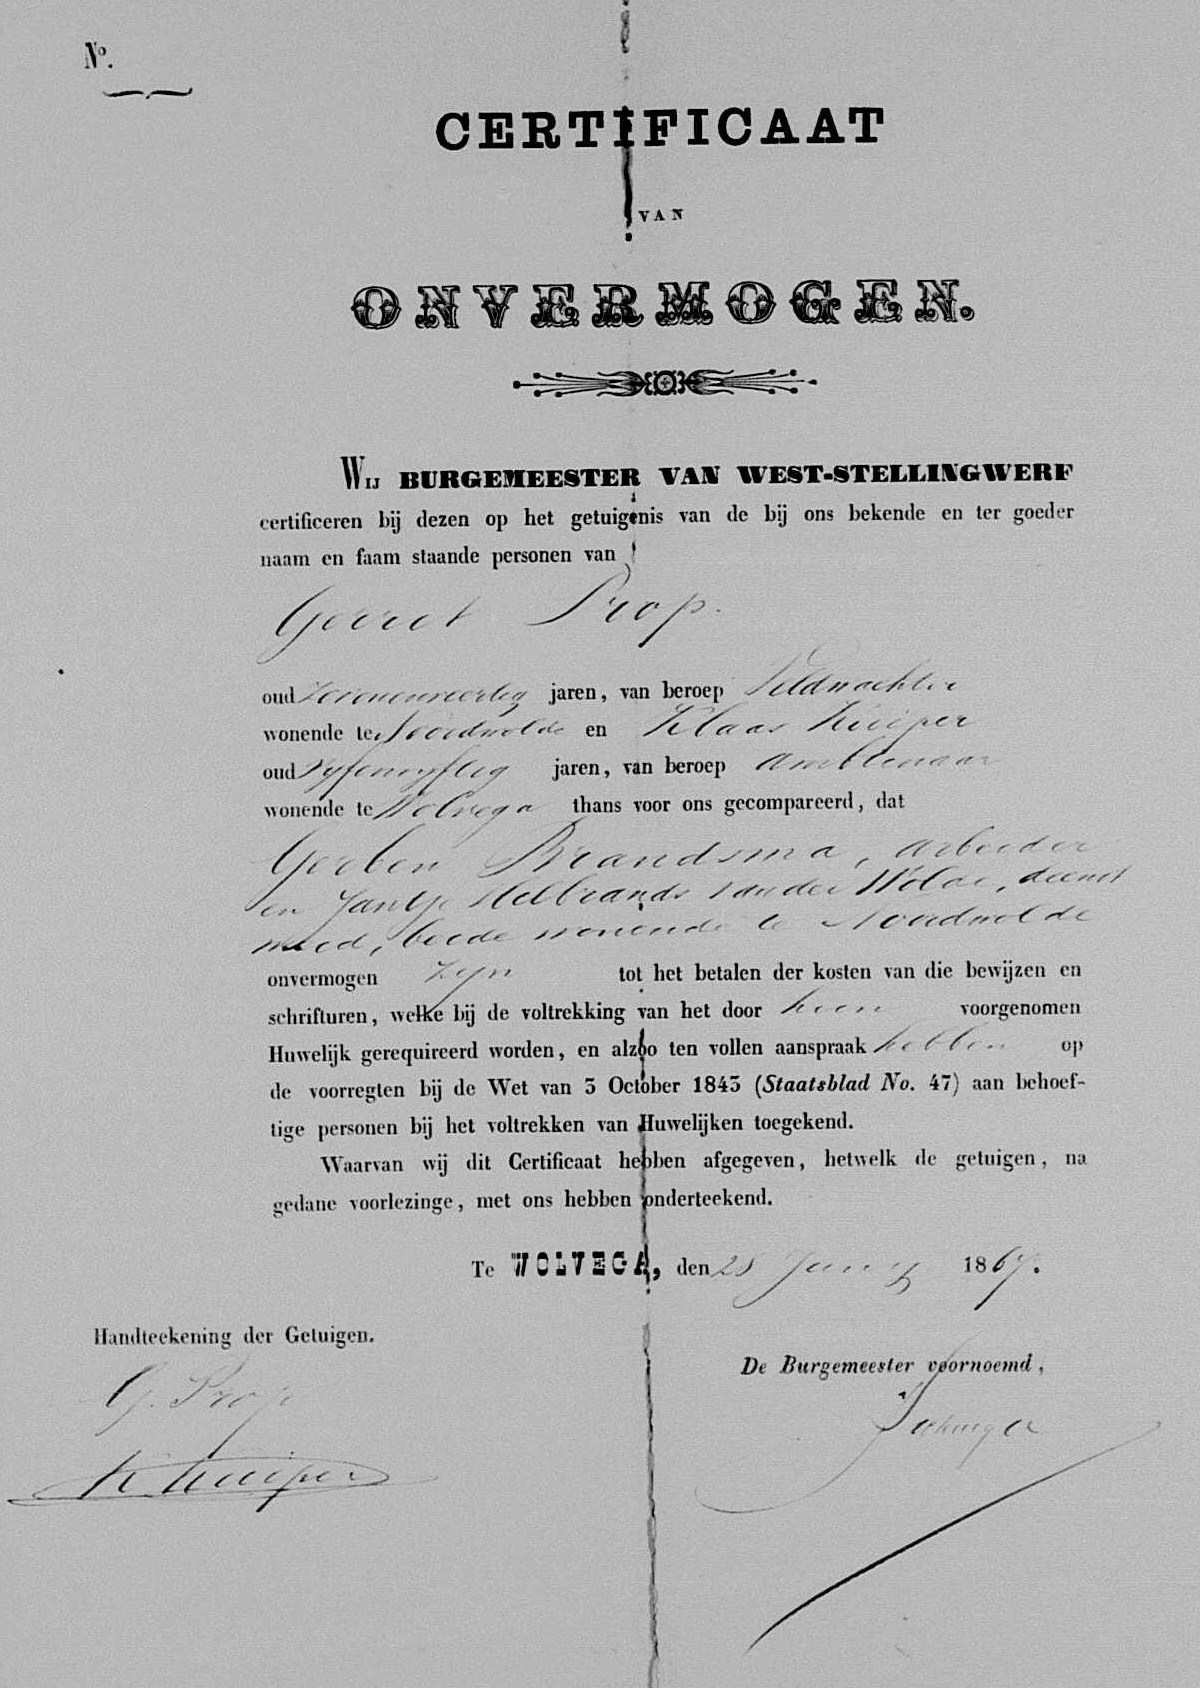 No.
CERTIFICAAT
VAN
ONVERMOGEN.
Wij BURGEMEESTER VAN WEST-STELLINGWERF
certificeren bij dezen op het getuigenis van de bij ons bekende en ter goeder
naam en faam staande personen van
Gerrit Prop.
oud Zevenenveertig jaren, van beroep Veldwachter
wonende te Noordwolde en Klaas Kuiper
oud Vyfenvyftig jaren, van beroep Ambtenaar
wonende te Wolvega thans voor ons gecompareerd, dat
Gerben Brandsma, arbeider
en Jantje Helbrands van der Wolde, dienst
meid, beide wonende te Noordwolde
onvermogen zyn tot het betalen der kosten van die bewijzen en
schrifturen, welke bij de voltrekking van het door hen voorgenomen
Huwelijk gerequireerd worden, en alzoo ten vollen aanspraak hebben op
de voorregten bij de Wet van 3 October 1843 (Staatsblad No. 47) aan behoef-
tige personen bij het voltrekken van Huwelijken toegekend.
Waarvan wij dit Certificaat hebben afgegeven, hetwelk de getuigen, na
gedane voorlezinge, met ons hebben onderteekend.
Te WOLVEGA, den 28 Juny 1867.
Handteekening der Getuigen.
De Burgemeester voornoemd,
G. Prop
K Kuiper